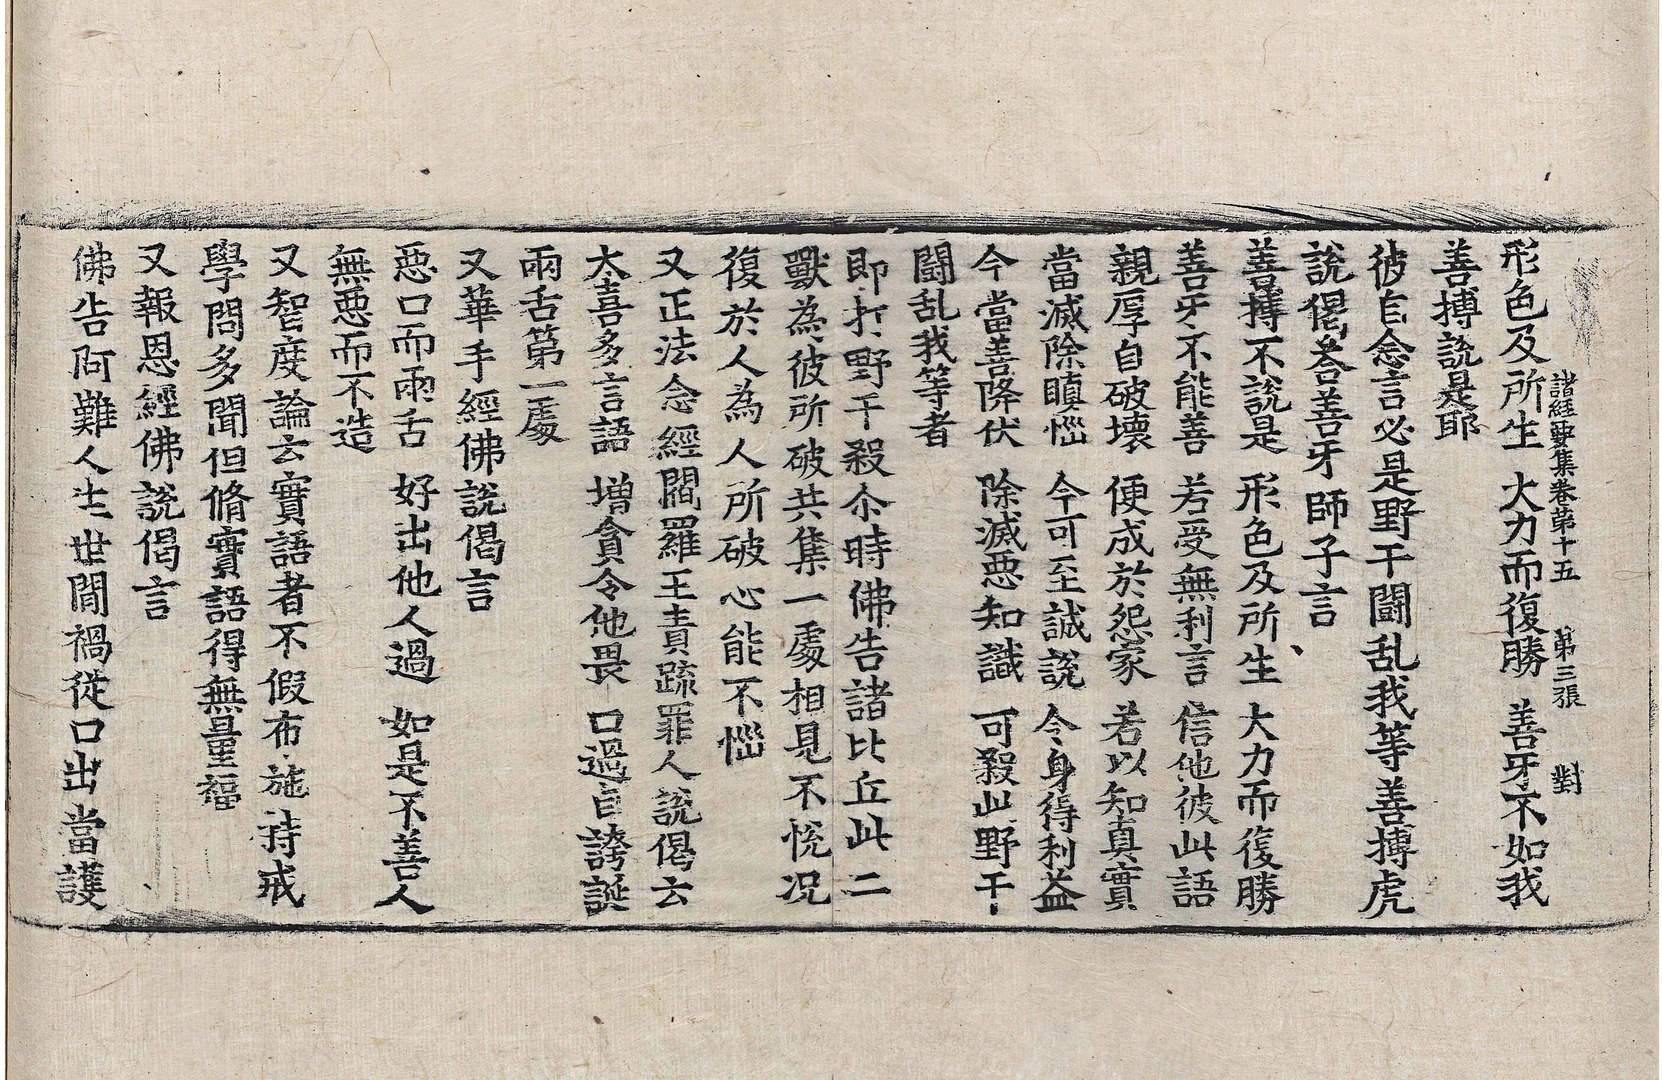 諸經要集卷第十五 第三張 對
形色及所生 大力而復勝 善牙不如我
善搏說是耶
彼自念言必是野干鬪乱我等善搏虎
說偈荅善牙師子言
善搏不說是 形色及所生 大力而復勝
善牙不能善 若受無利言 信他彼此語
親厚自破壞 便成於怨家 若以知真實
當滅除瞋惱 今可至誠說 令身得利益
今當善降伏 除滅惡知識 可殺此野干
鬪乱我等者
即打野干殺尒時佛告諸比丘此二
獸為彼所破共集一處相見不悅况
復於人為人所破心能不惱
又正法念經閻羅王責疏罪人說偈云
大喜多言語 增貪令他畏 口過自誇誕
兩舌第一處
又華手經佛說偈言
惡口而兩舌 好出他人過 如是不善人
無惡而不造
又智度論云實語者不假布施持戒
學問多聞但脩實語得無量福
又報恩經佛說偈言
佛告阿難人生世間禍從口出當護